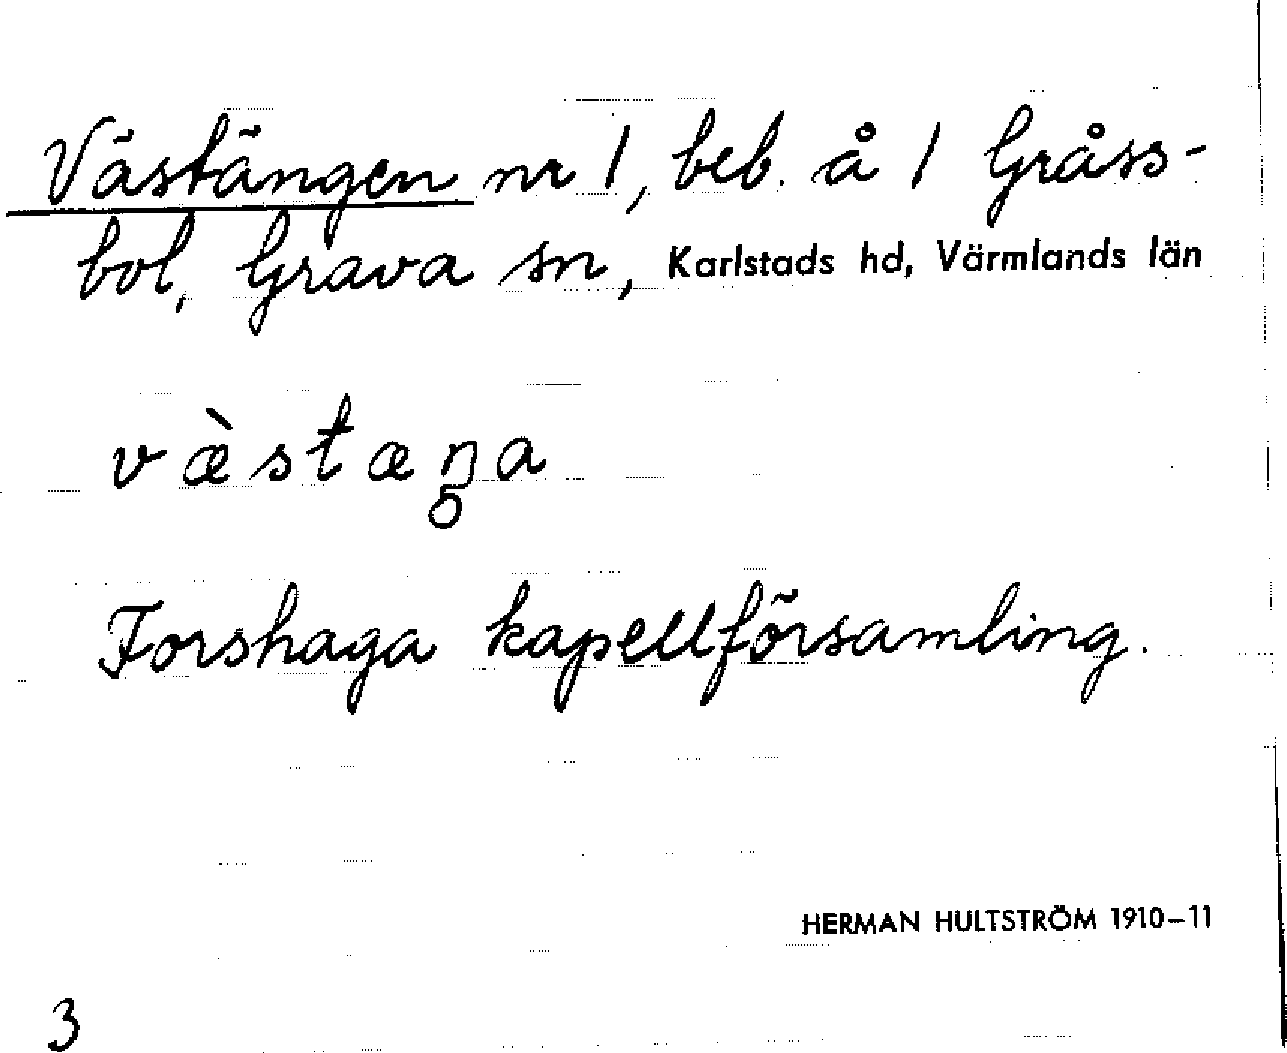 Västängen nr 1, beb. å 1 Gråss-
bol, Grava sn, Karlstads hd, Värmlands län
væ̀stæŋ̥a
Forshaga kapellförsamling.
HERMAN HULTSTRÖM 1910–11
3